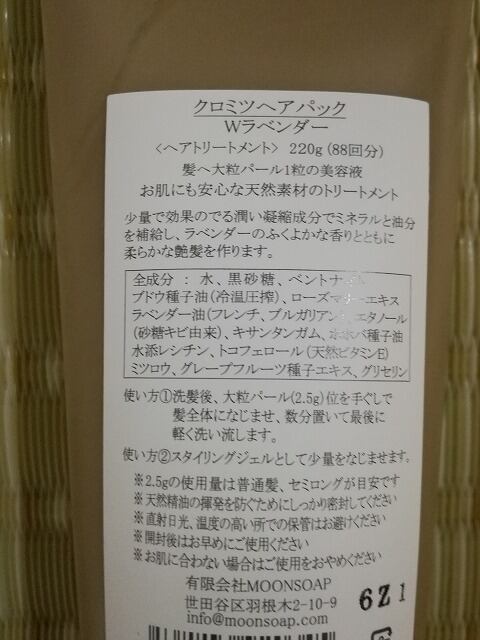 クロミツヘアパック
Wラベンダー
〈ヘアトリートメント〉 220g (88回分)
髪へ大粒パール1粒の美容液
お肌にも安心な天然素材のトリートメント
少量で効果のでる潤い凝縮成分でミネラルと油分
を補給し、ラベンダーのふくよかな香りとともに
柔らかな艶髪を作ります。
全成分 : 水、黒砂糖、ベントナイト
ブドウ種子油(冷温圧搾)、ローズマリーエキス
ラベンダー油(フレンチ、ブルガリアン)、エタノール
(砂糖キビ由来)、キサンタンガム、ホホバ種子油
水添レシチン、トコフェロール(天然ビタミンE)
ミツロウ、グレープフルーツ種子エキス、グリセリン
使い方①洗髪後、大粒パール(2.5g)位を手ぐしで
髪全体になじませ、数分置いて最後に
軽く洗い流します。
使い方②スタイリングジェルとして少量をなじませます。
※2.5gの使用量は普通髪、セミロングが目安です
※天然精油の揮発を防ぐためにしっかり密封してください
※直射日光、温度の高い所での保管はお避けください
※開封後はお早めにご使用ください
※お肌に合わない場合はご使用をおやめください
有限会社MOONSOAP
世田谷区羽根木2-10-9
info@moonsoap.com
6Z1